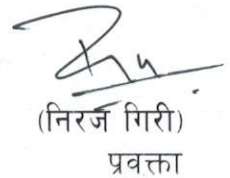 (निरज गिरी)
प्रवक्ता